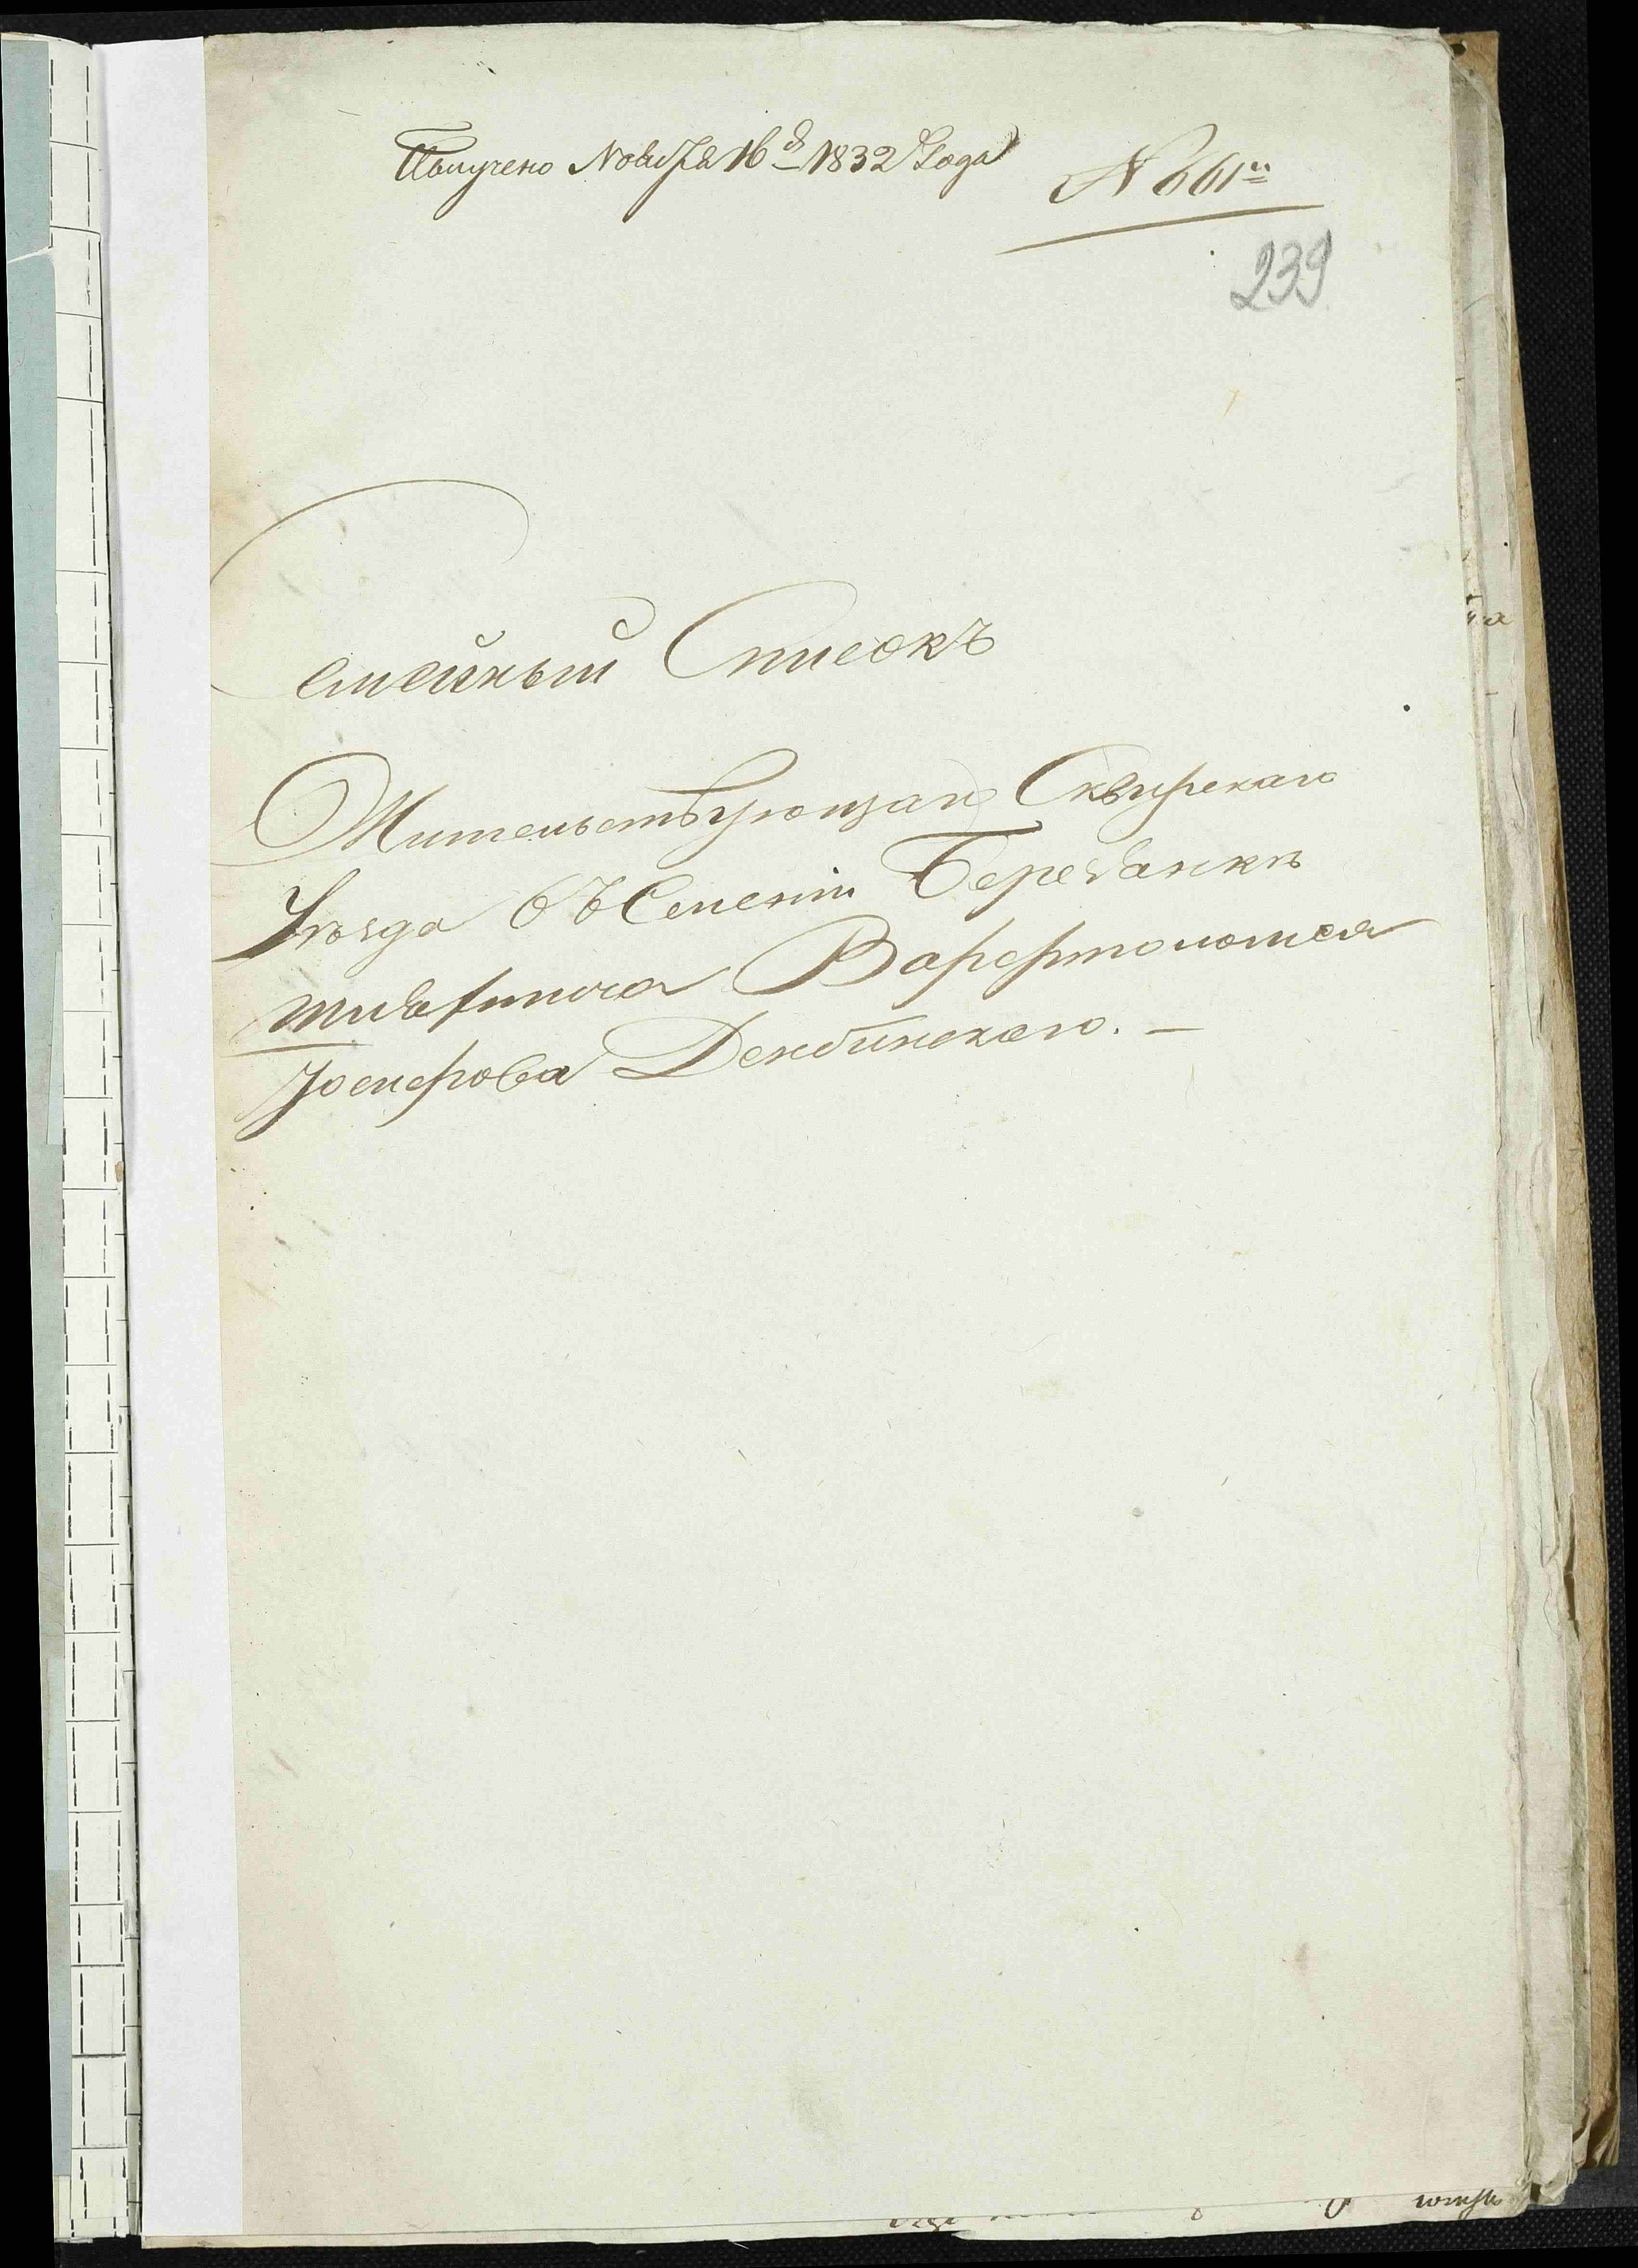 Получено Ноября 16 д 1832 Года
N 661
239
Семейный Списокъ
Жительствующаго Сквирскаго
Уѣзда въ Селеніи Березанкѣ
шляхтича Варфоломея
Іосифова Дембинскаго. —